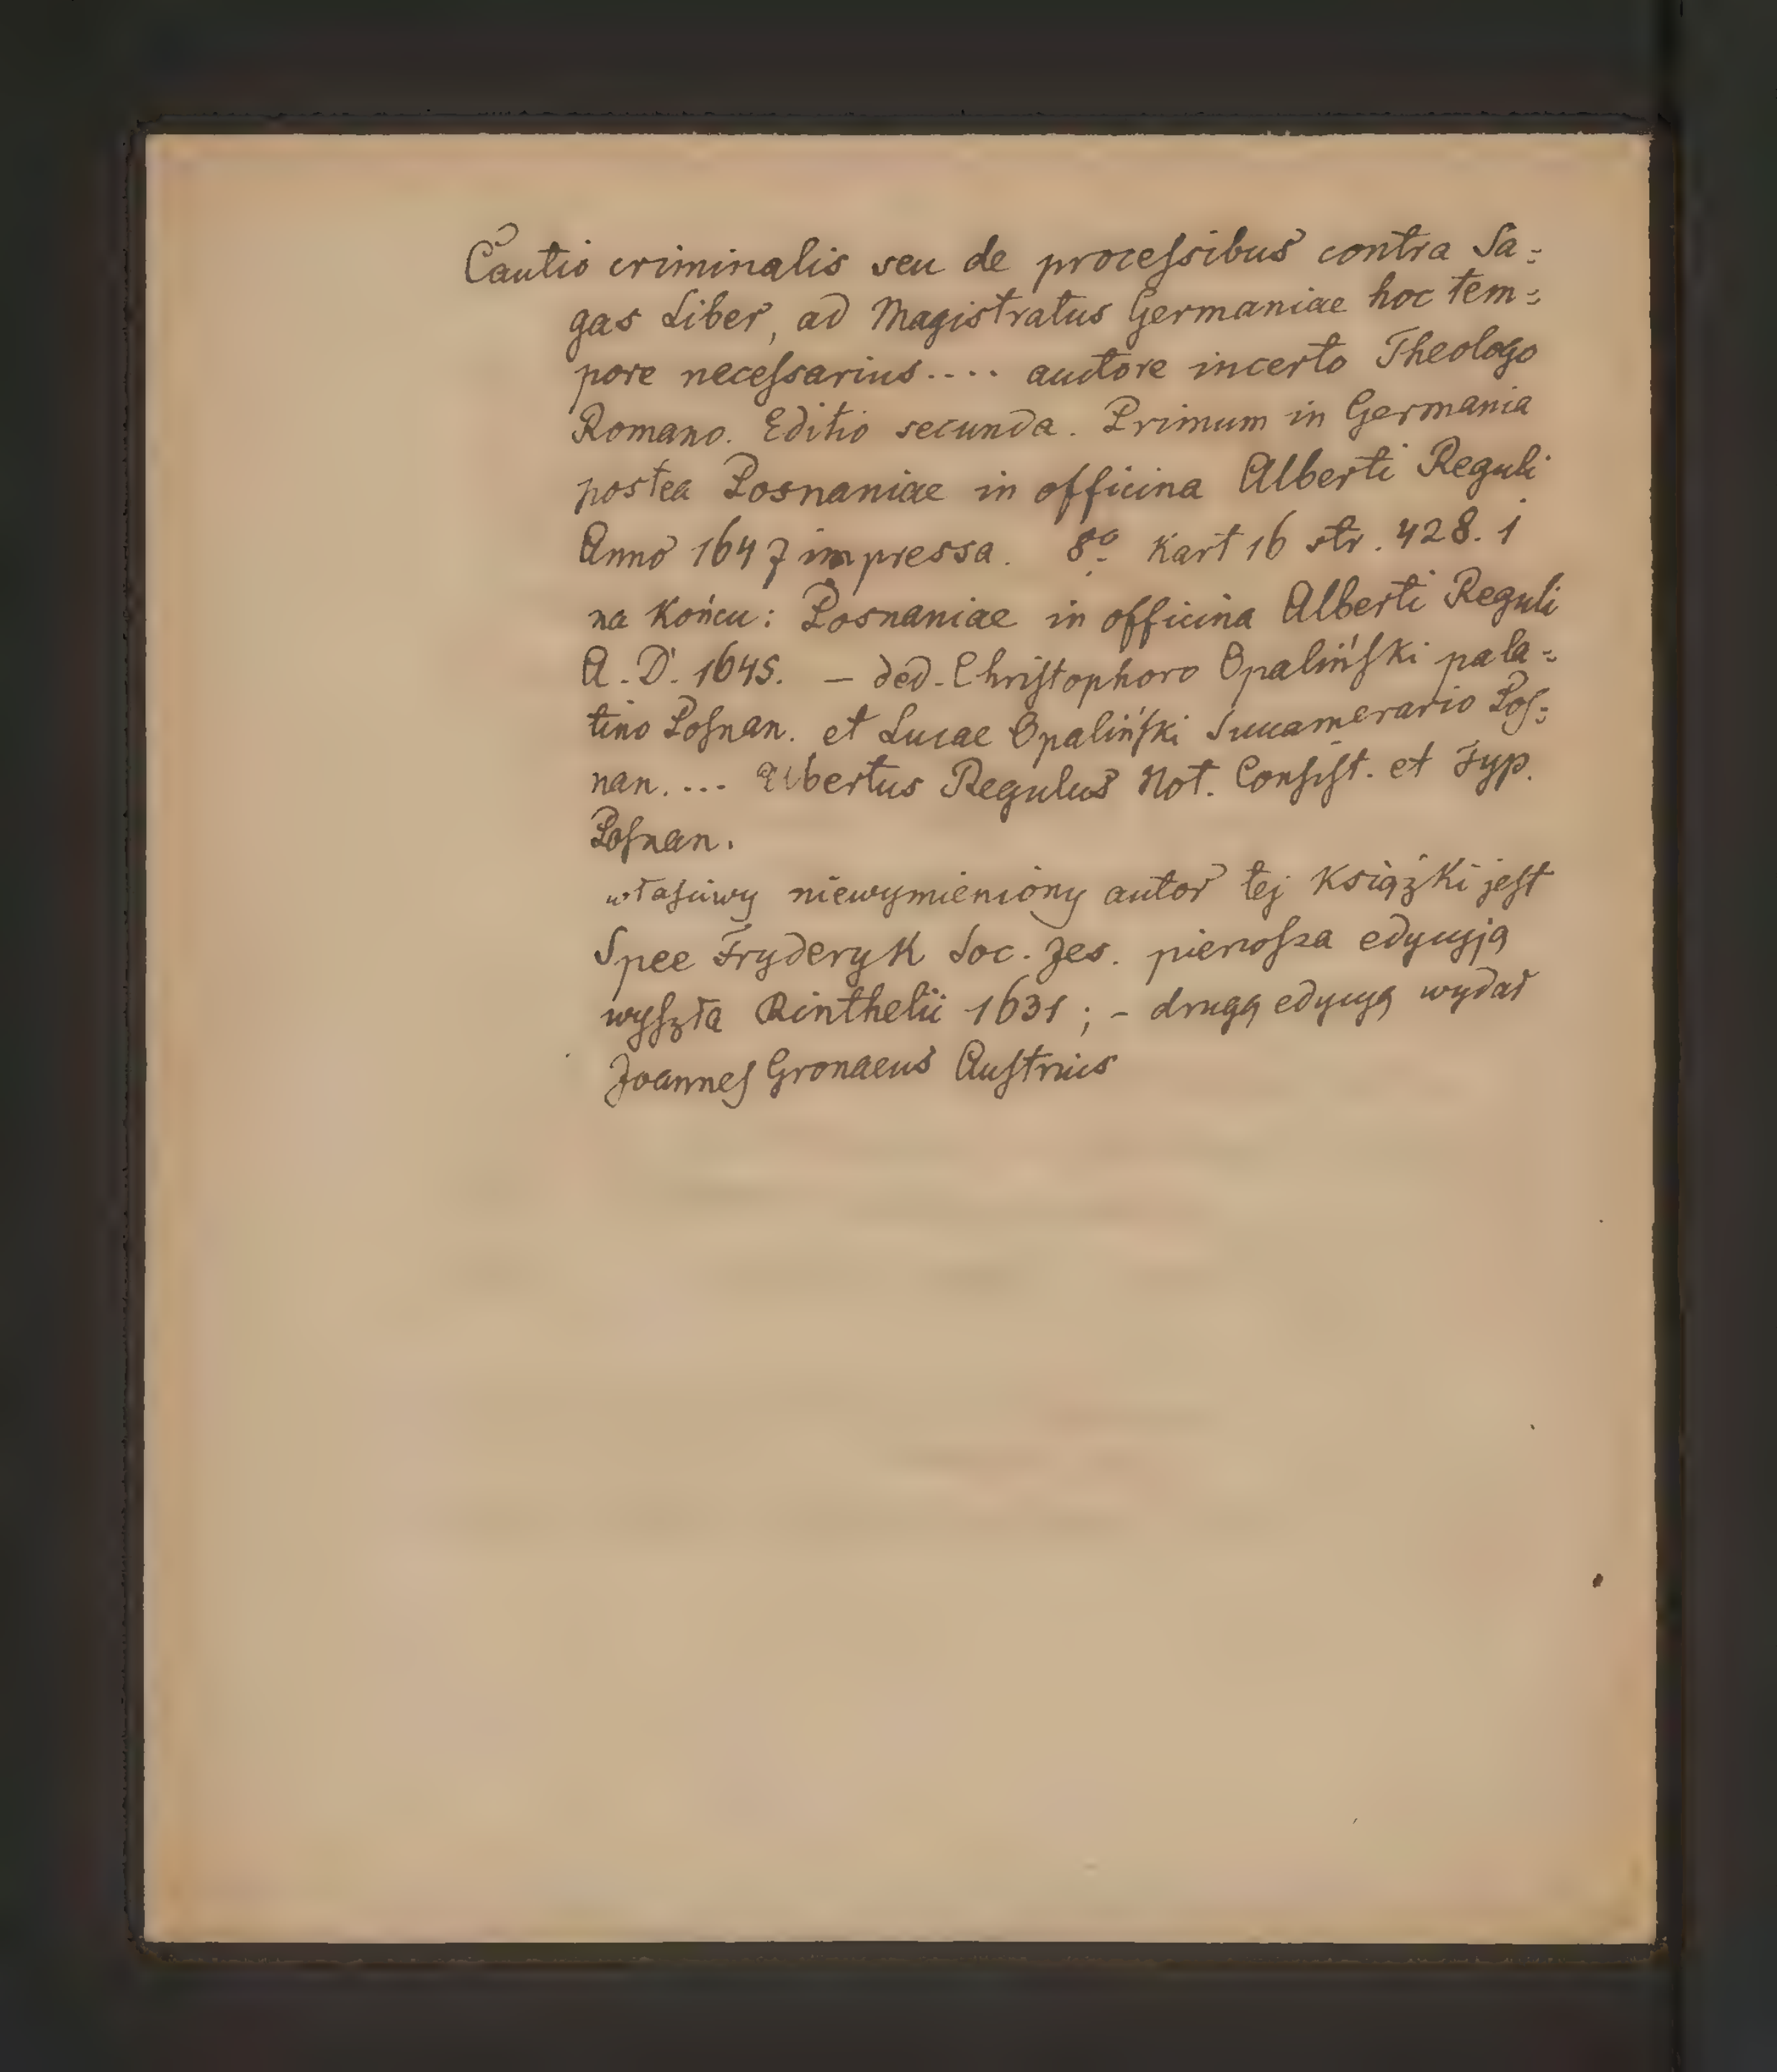 Cautio criminalis seu de processibus contra Sa=
gas Liber, ad Magistratus Germaniae hoc tem=
pore necessarius.... auctore incerto Theologo
Romano. Editio secunda. Primum in Germania
postea Posnaniae in officina Alberti Reguli
Anno 1647 impressa. 8º Kart 16 str. 428. i
na Końcu: Posnaniae in officina Alberti Reguli
A. D. 1645. — ded. Christophoro Opaliński pala=
tino Posnan. et Lucae Opaliński Succamerario Pos=
nan.... Albertus Regulus Not. Consist. et Typ.
Posnan.
właściwy niewymieniony autor tej Książki jest
Spee Fryderyk Soc. Jes. pierwsza edycyja
wyszła Rinthelii 1631; - drugą edycyą wydał
Joannes Gronaeus Austrius